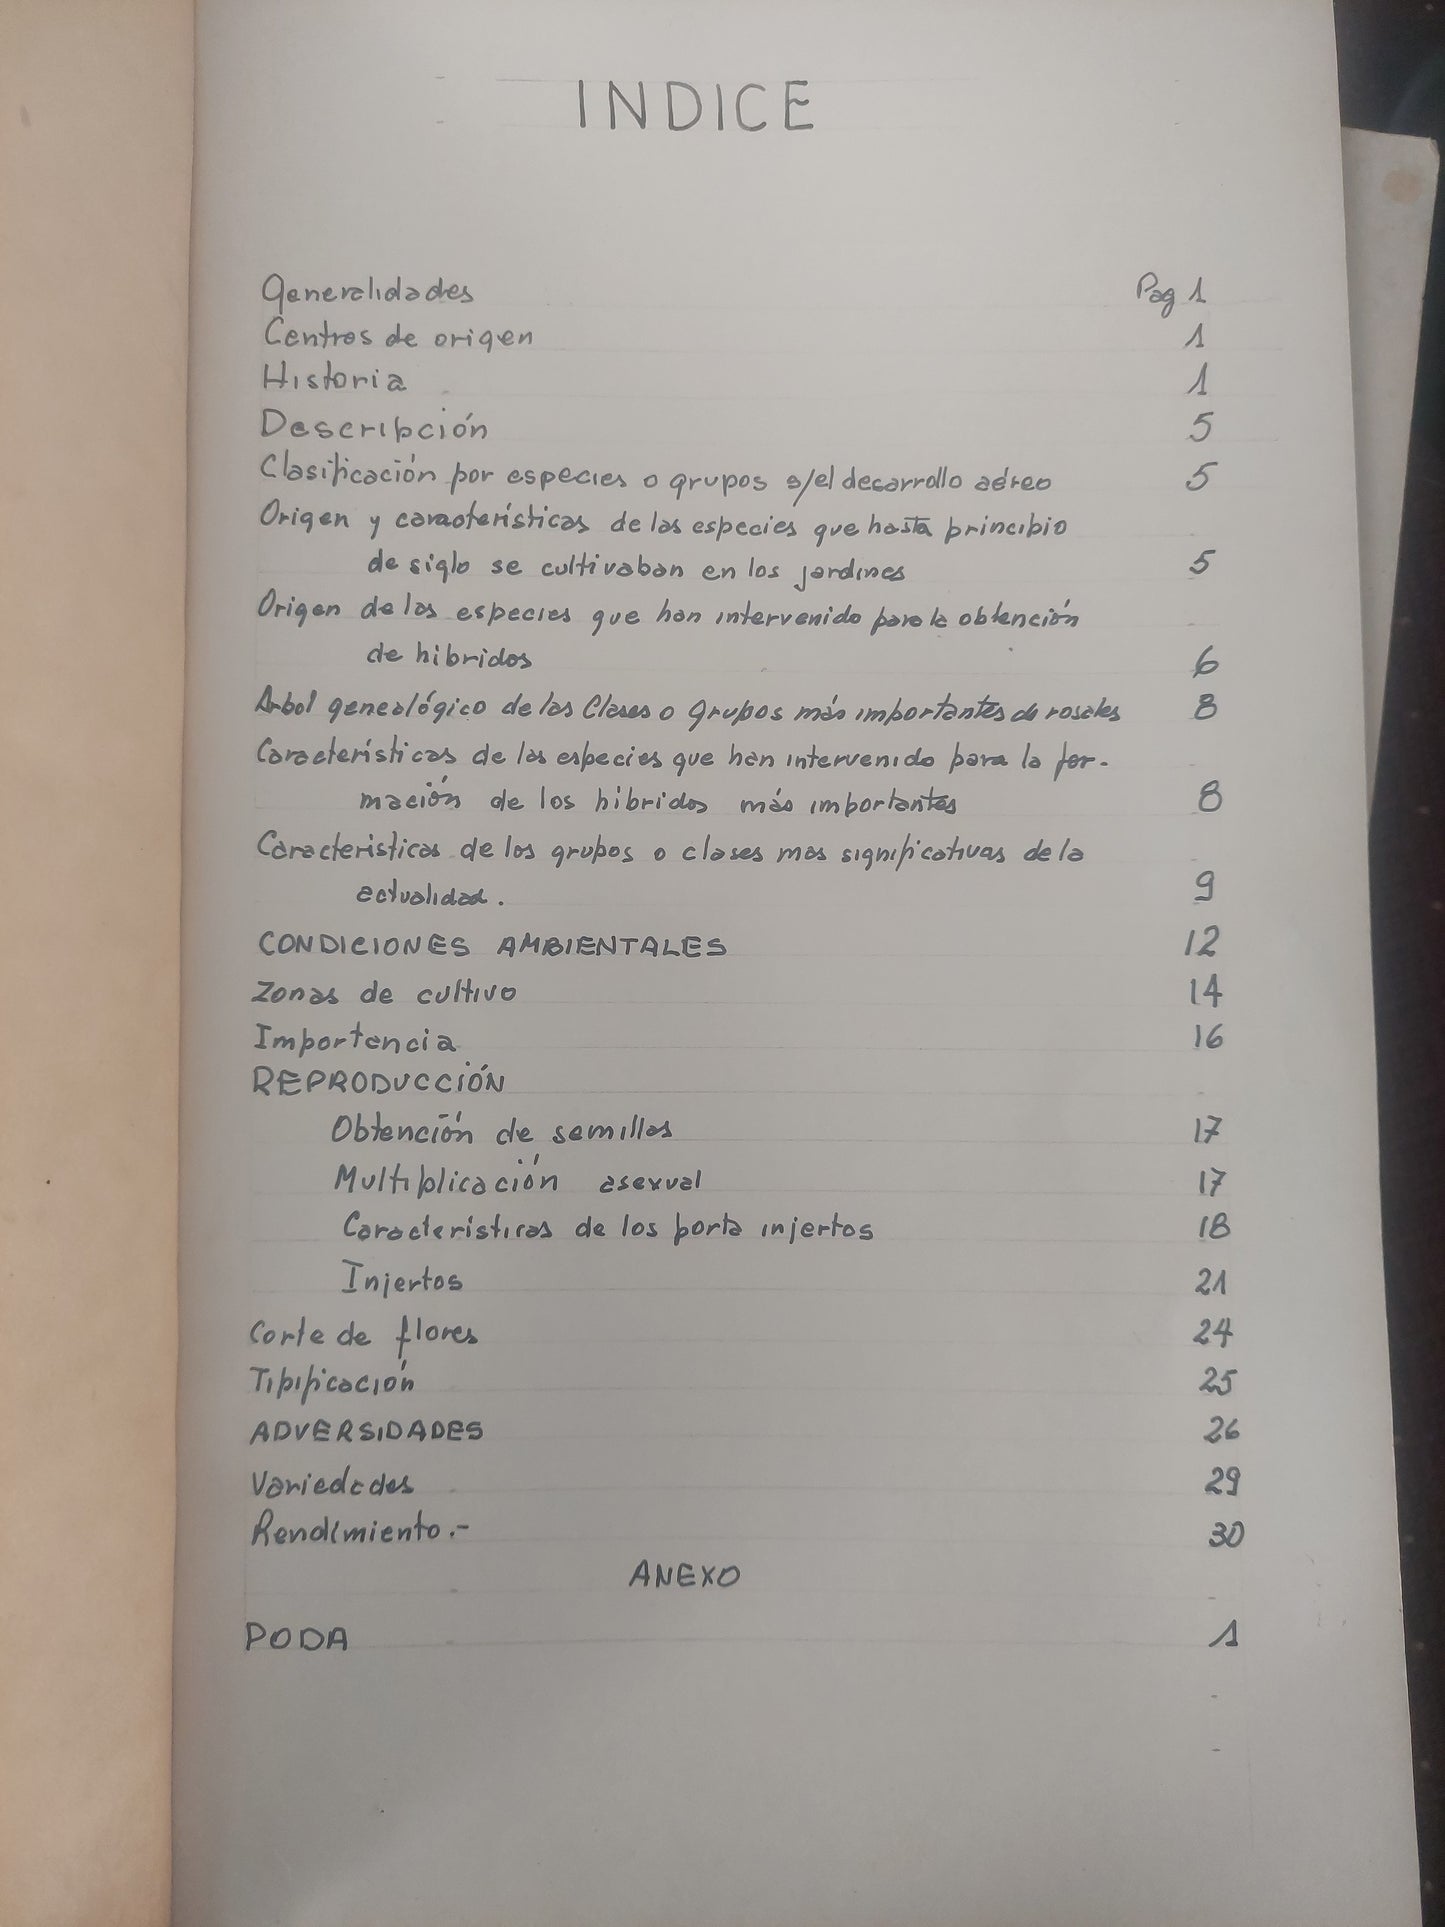 INDICE
Generalidades Pag 1
Centros de origen 1
Historia 1
Descripción 5
Clasificación por especies o grupos s/el desarrollo aéreo 5
Origen y características de las especies que hasta principio
de siglo se cultivaban en los jardines 5
Origen de las especies que han intervenido para la obtención
de hibridos 6
Arbol genealógico de las Clases o grupos más importantes de rosales 8
Características de las especies que han intervenido para la for-
mación de los hibridos más importantes 8
Caracteristicas de los grupos o clases mas significativas de la
actualidad. 9
CONDICIONES AMBIENTALES 12
Zonas de cultivo 14
Importancia 16
REPRODUCCIÓN
Obtención de semillas 17
Multiplicación asexual 17
Caracteristicas de los porta injertos 18
Injertos 21
Corte de flores 24
Tipificación 25
ADVERSIDADES 26
Variedades 29
Rendimiento.- 30
ANEXO
PODA 1